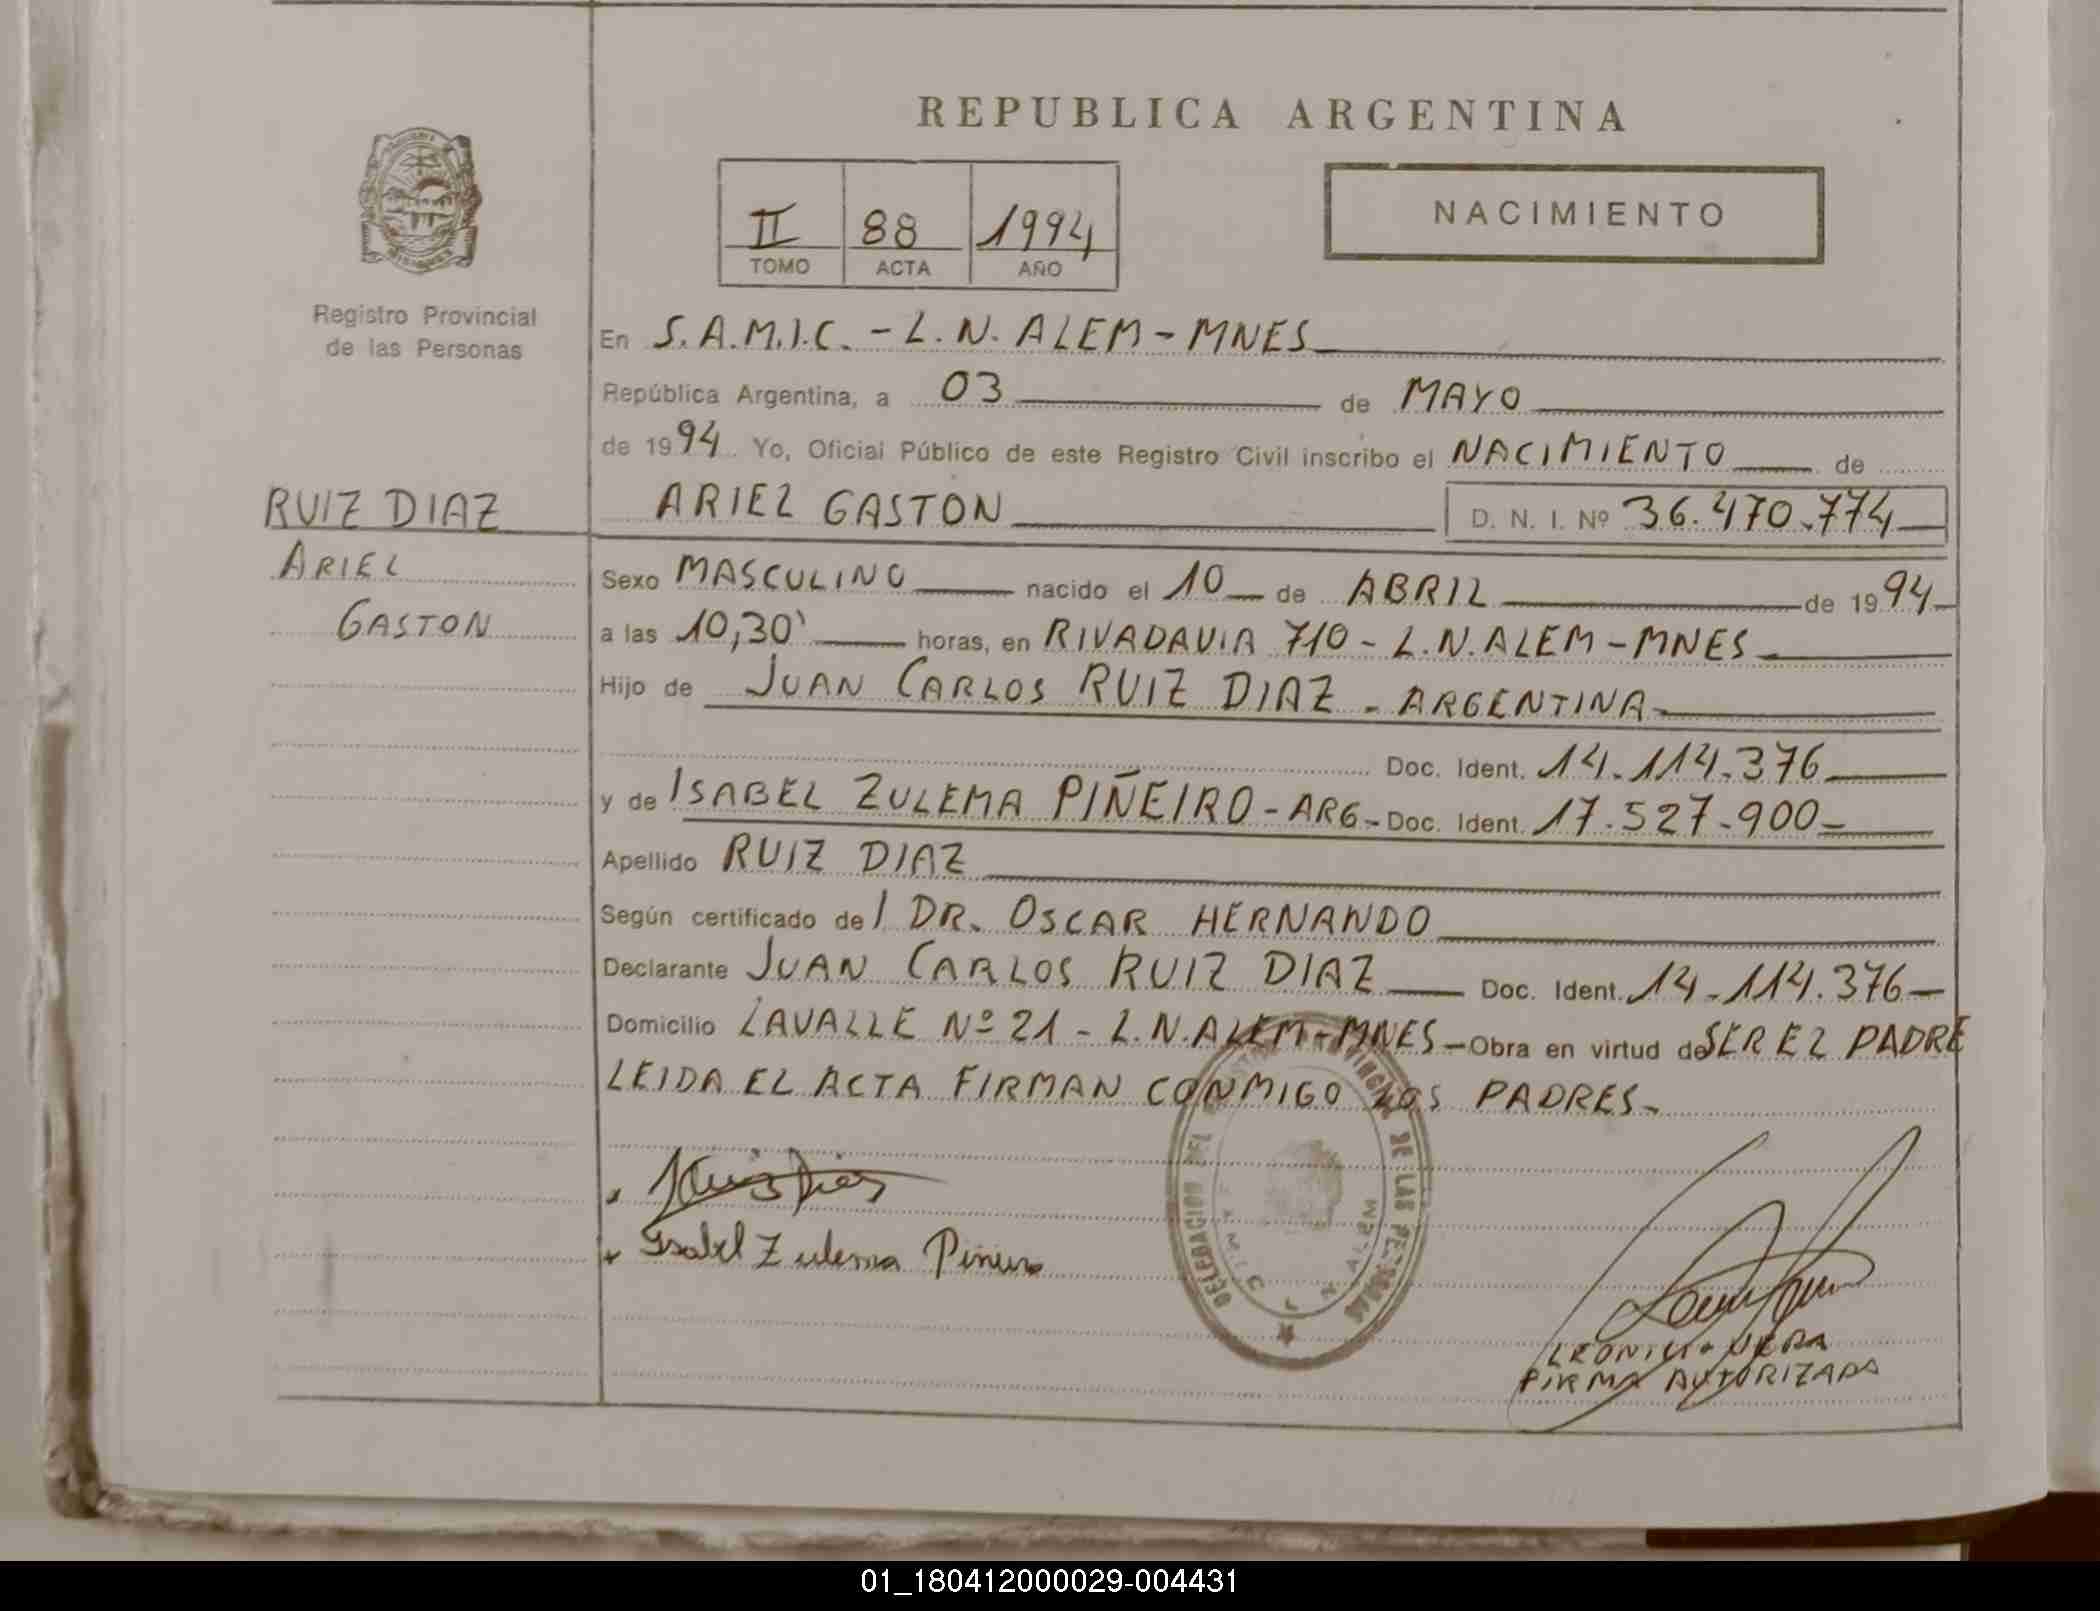 REPUBLICA ARGENTINA
II 88 1994
TOMO ACTA AÑO
NACIMIENTO
Registro Provincial
de las Personas
En S.A.M.I.C. - L.N. ALEM - MNES
República Argentina, a 03 de MAYO
de 1994 Yo, Oficial Público de este Registro Civil inscribo el NACIMIENTO de
RUIZ DIAZ
ARIEL
GASTON
ARIEL GASTON D. N. I. Nº 36.470.774
Sexo MASCULINO nacido el 10 de ABRIL de 1994
a las 10,30' horas, en RIVADAVIA 710 - L.N. ALEM - MNES
Hijo de JUAN CARLOS RUIZ DIAZ - ARGENTINA
Doc. Ident. 14.114.376
y de ISABEL ZULEMA PIÑEIRO - ARG - Doc. Ident. 17.527.900
Apellido RUIZ DIAZ
Según certificado del DR. OSCAR HERNANDO
Declarante JUAN CARLOS RUIZ DIAZ Doc. Ident. 14.114.376
Domicilio LAVALLE Nº 21 - L.N. ALEM - MNES - Obra en virtud de SER EL PADRE
LEIDA EL ACTA FIRMAN CONMIGO LOS PADRES
Ruiz Diaz
Isabel Zulema Piñeiro
DELEGACION DEL PROVINCIAL DE LAS PERSONAS
L N ALEM
VERA
FIRMA AUTORIZADA
01_180412000029-004431